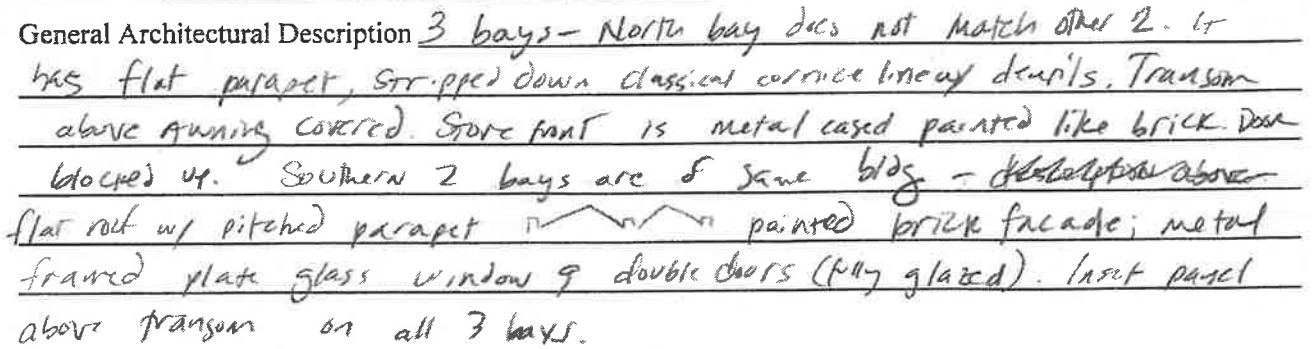 General Architectural Description 3 bays - North bay does not match other 2. It
has flat parapet, stripped down classical cornice line w/ dentils. Transom
above Awning covered. Store front is metal cased painted like brick. Door
blocked up. Southern 2 bays are of same bldg -
flat roof w/ pitched parapet painted brick facade; metal
framed plate glass window & double doors (fully glazed). Inset panel
above transom on all 3 bays.